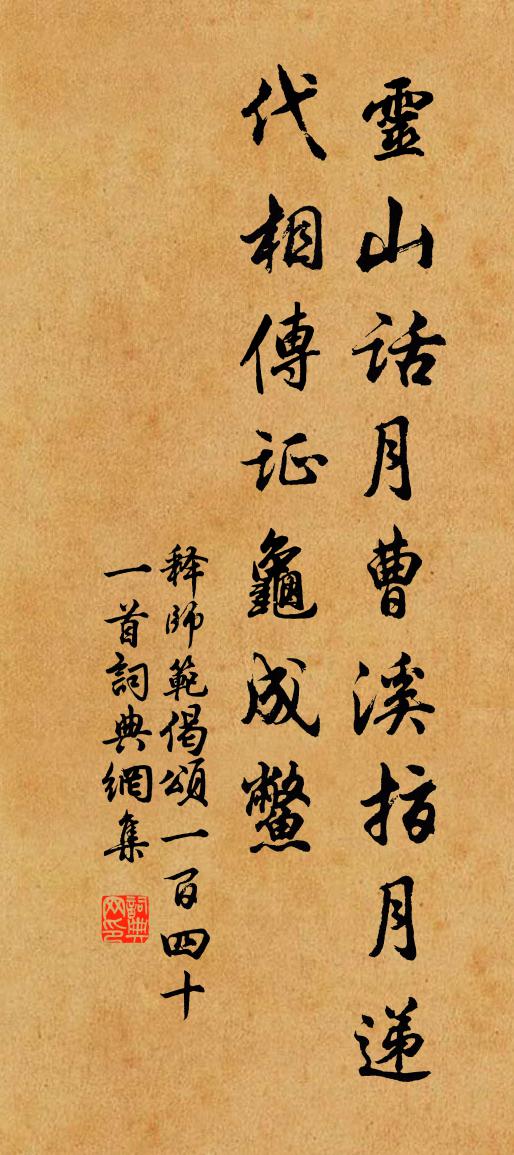 靈山話月曹溪指月递
代相傳证龜成鱉
释師範偈頌一百四十
一首詞典網集
詞典网印